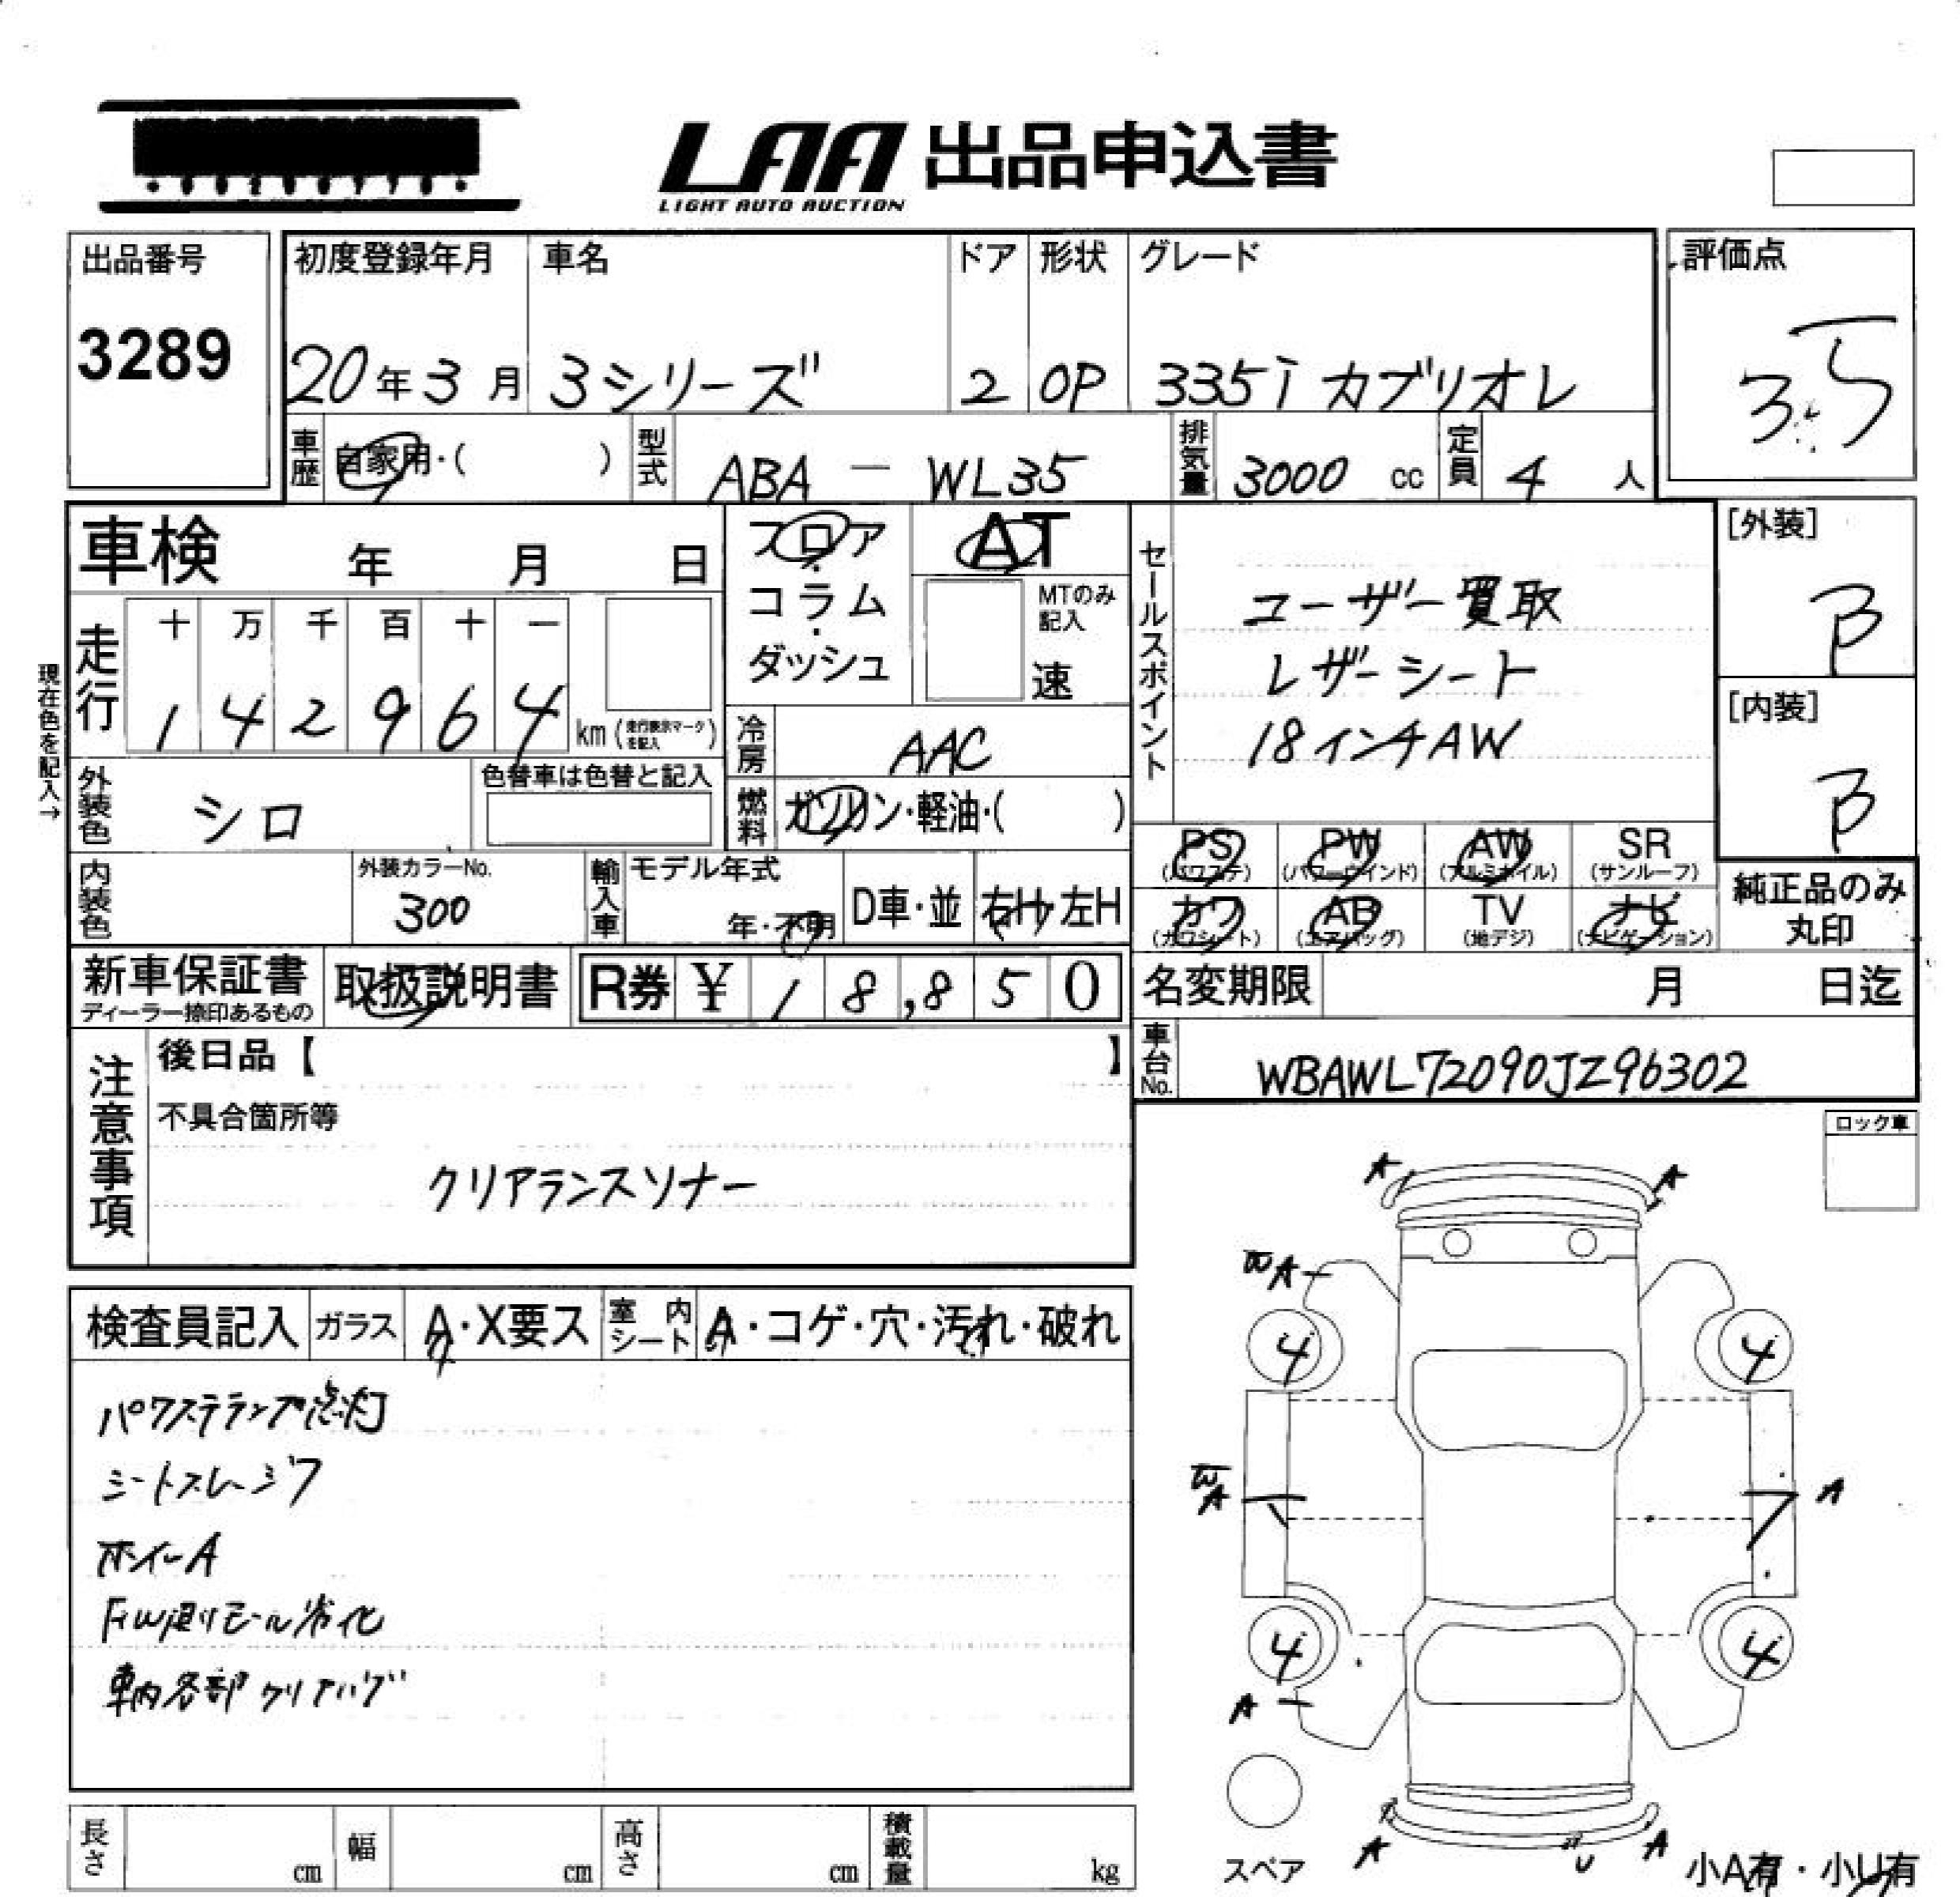 LAA 出品申込書
LIGHT AUTO AUCTION
出品番号
3289
初度登録年月 車名 ドア 形状 グレード
20年3月 3シリーズ 2 OP 335i カブリオレ
評価点
3.5
車歴 自家用・( ) 型式 ABA － WL35 排気量 3000 cc 定員 4 人
車検 年 月 日
フロア・コラム・ダッシュ
AT
MTのみ記入
速
セールスポイント
ユーザー買取
レザーシート
18インチAW
[外装]
B
[内装]
B
現在色を記入→
走行 十 万 千 百 十 一
1 4 2 9 6 4 km (走行表示マークを記入)
冷房 AAC
外装色 シロ 色替車は色替と記入
燃料 ガソリン・軽油・( )
PS (パワステ) PW (パワーウインド) AW (アルミホイル) SR (サンルーフ)
カワ (カワシート) AB (エアバッグ) TV (地デジ) ナビ (ナビゲーション)
純正品のみ丸印
内装色 外装カラーNo. 300 輸入車 モデル年式 年・不明 D車・並 右H・左H
新車保証書 ディーラー捺印あるもの 取扱説明書 R券 ¥ 1 8,8 5 0
名変期限 月 日迄
車台No. WBAWL72090JZ96302
注意事項
後日品【 】
不具合箇所等
クリアランスソナー
ロック車
検査員記入 ガラス A・X要ス 室内シート A・コゲ・穴・汚れ・破れ
パワステランプ点灯
シートスレ・シワ
ホイールA
FW周りモール劣化
車内各部クリーニング
A A
W A
4 4
W A A
4 4
A
A U A
スペア
小A有・小U有
長さ cm 幅 cm 高さ cm 積載量 kg